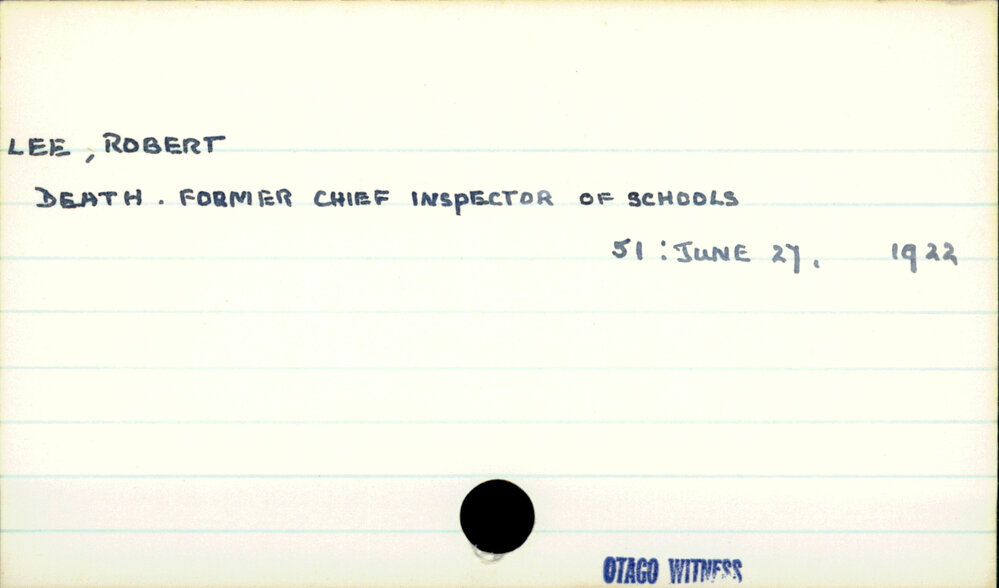 LEE, ROBERT
DEATH. FORMER CHIEF INSPECTOR OF SCHOOLS
51: JUNE 27, 1922
OTAGO WITNESS